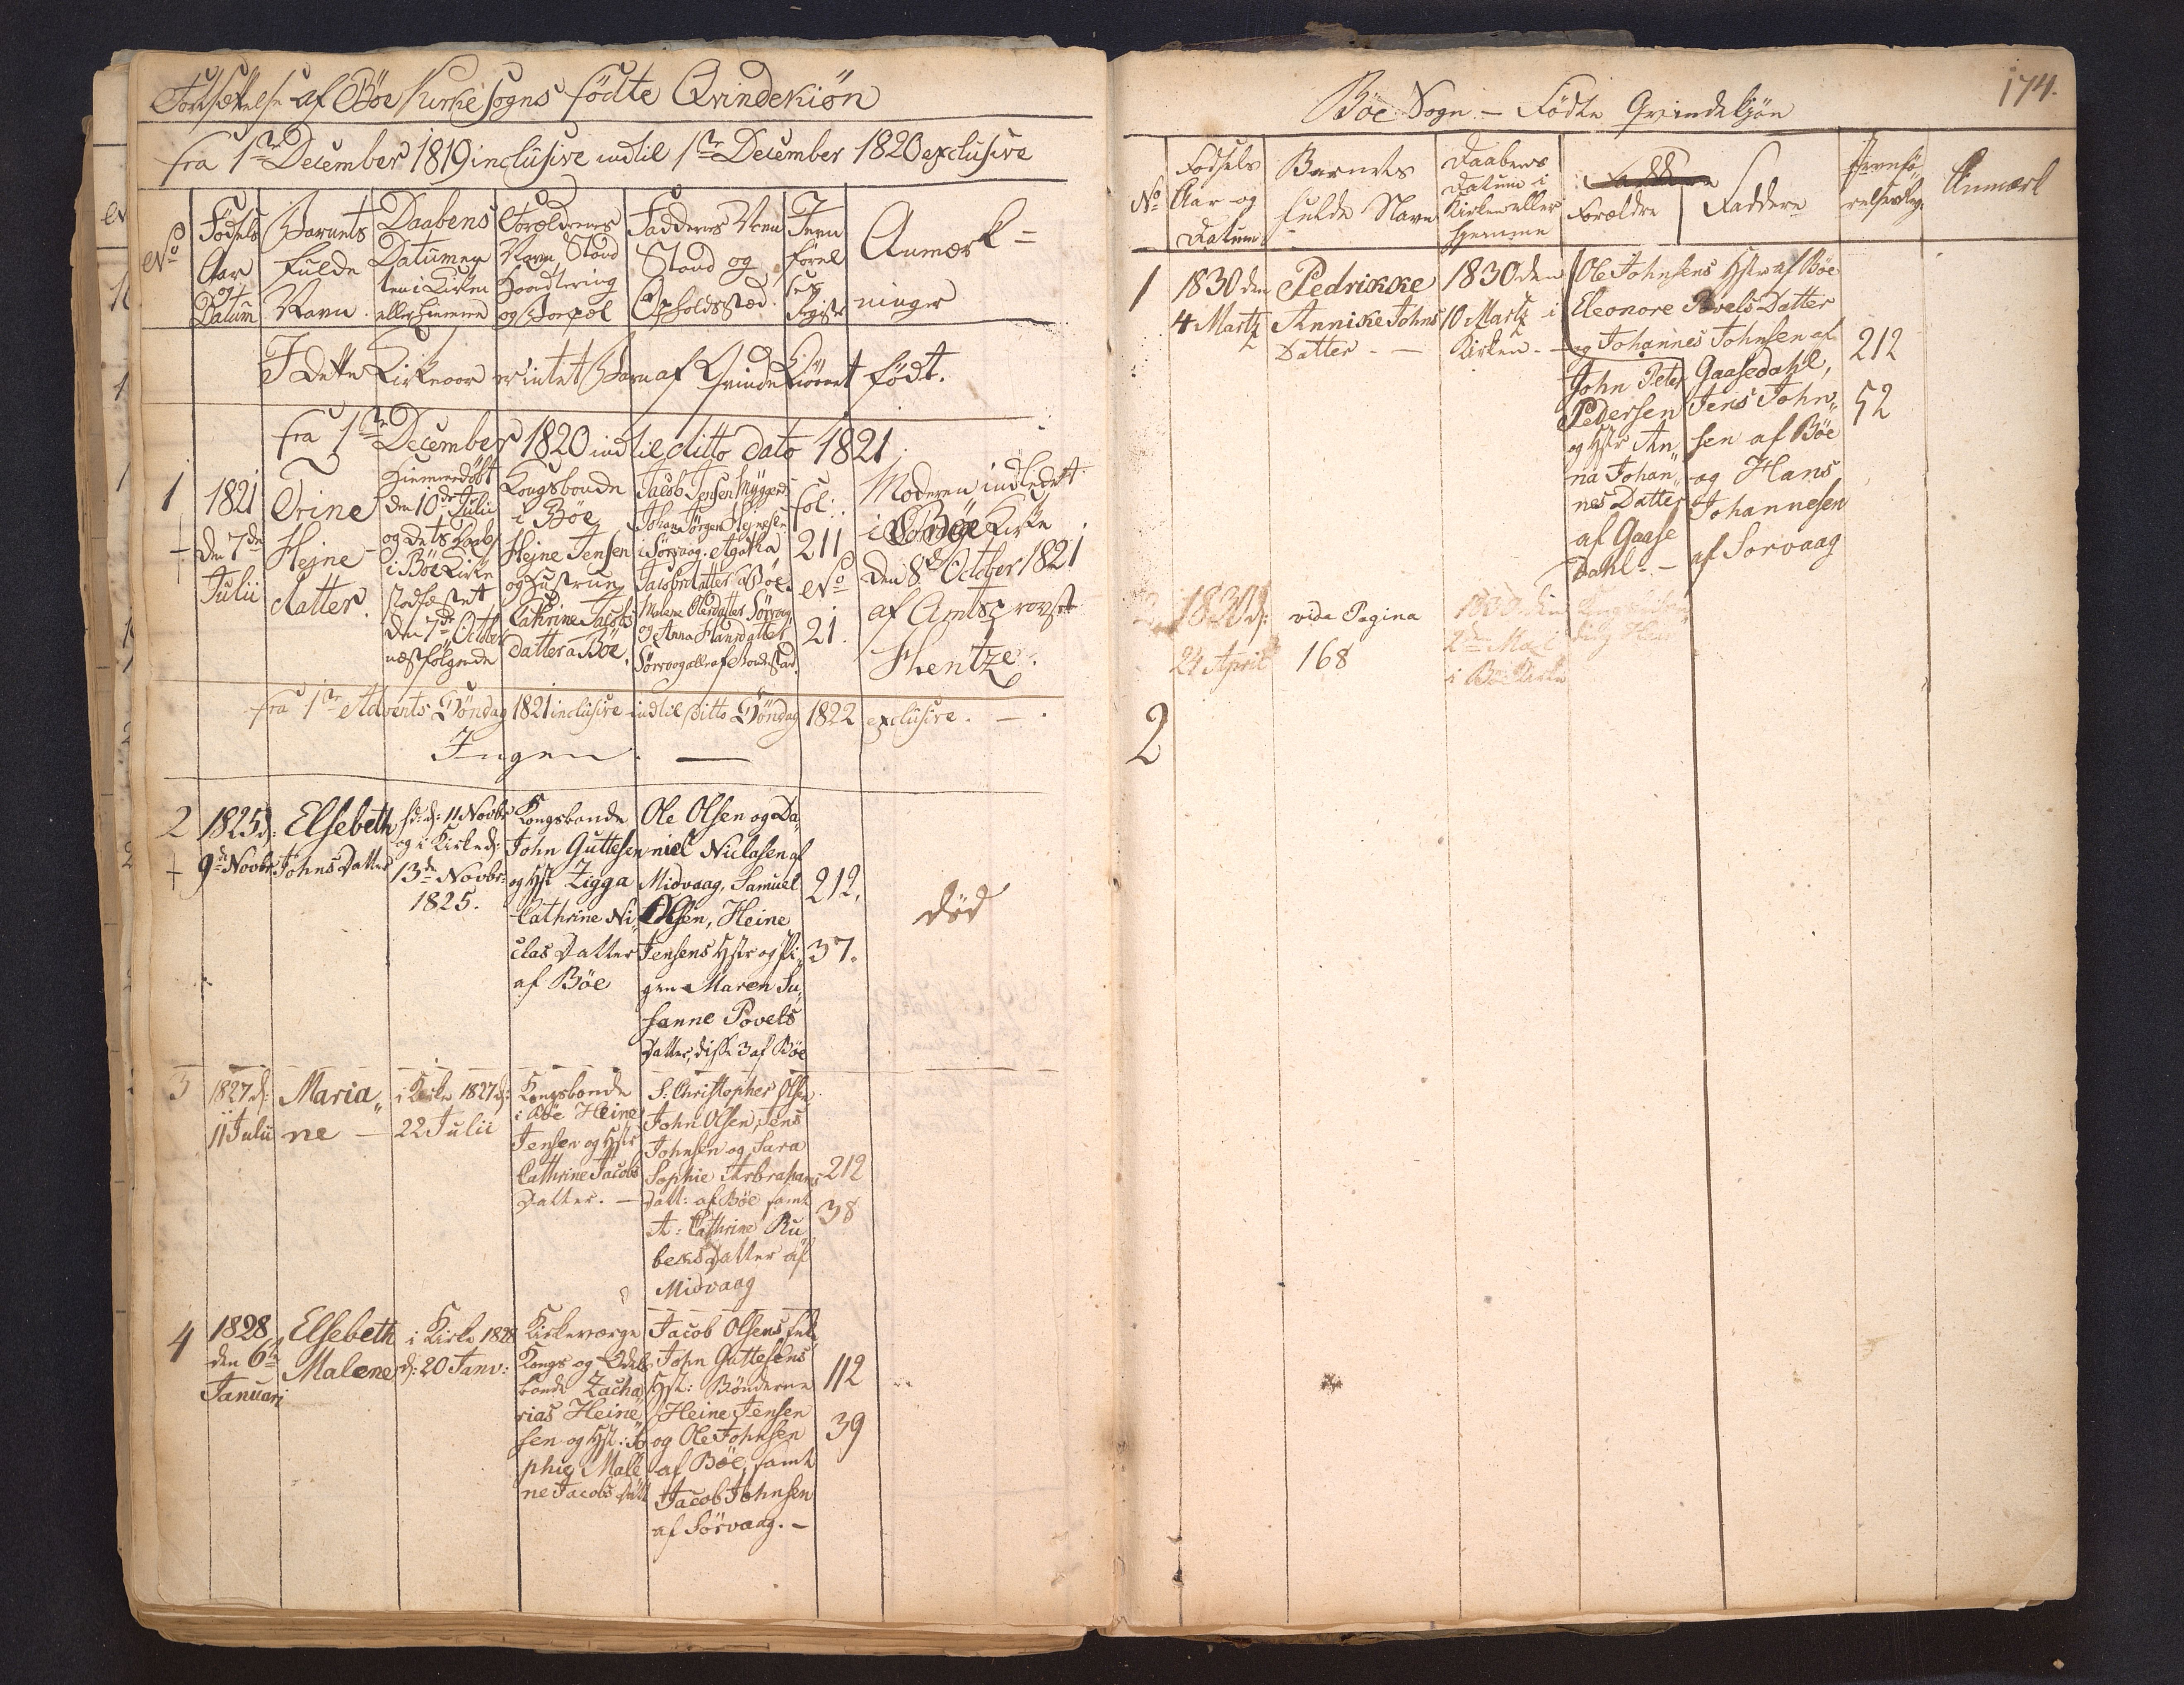 Fortsættelse af Böe Kirke Sogns födte Qvindekiön
fra 1ste December 1819 inclusive indtil 1ste December 1820 exclusive
No
Födsels
Aar
og
Datum
Barnets
fulde
Navn
Daabens
Datum en
ten i Kirken
eller hiemme
Forældrenes
Navn, Stand
Haandtering
og Boepæl
Faddernes Navn
Stand og
Opholdssted.
Jevn
förel
ses
Register
Anmærk=
ninger
I dette Kirkeaar er intet Barn af Qvinde Kiönnet födt.
fra 1ste December 1820 indtil ditto dato 1821
1
1821
den 7de
Julii
Trine
Hejne-
datter.
Hiemmedöbt
den 10de Julii
og dets Daab
i Böe Kirke
stadfæstet
den 7de October
næstfölgende
Kongsbonde
i Böe
Hejne Jensen
og Hustrue
Cathrine Jacobs
datter a Böe.
Jacob Jensen Myggenæs
Johan Jörgen Hejnesen
i Sörvaag. Agatha
Jacobsdatter a Böe.
Malene Olesdatter Sörvaag
og Anna Hansdatter
Sörvaag alle af Bondestand.
fol:
211
No
21.
Moderen indledet
i Böe Kirke
den 8de October 1821
af Amtsprovst
Hentze.
fra 1ste Advents Söndag 1821 inclusive indtil ditto Söndag 1822 exclusive. —
Ingen. —
2
1825 d:
9de Novbr
Elsebeth
Johns Datter
hd: d: 11 Novbr
og i Kirke d:
13de Novbr:
1825.
Kongsbonde
John Guttesen
og Hst Zigga
Cathrine Ni„
clas Datter
af Böe
Ole Olsen og Da„
niel Niclasen af
Midvaag, Samuel
Olsen, Heine
Jensens Hstr og Pi„
gen Maren Su„
sanne Povels
Datter, disse 3 af Böe
212.
37.
död
3
1827 d:
11 Julii
Maria„
ne —
i Kirke 1827 d:
22 Julii
Kongsbonde
i Böe Heine
Jensen og Hstr
Cathrine Jacobs
Datter. —
S: Christopher Olsen
John Olsen, Jens
Johnsen og Sara
Sophie Arbrahams
Datt: af Böe samt
A: Cathrine Ru
bens Datter af
Midvaag
212
38
4
1828
den 6te
Januari
Elsebeth
Malene
i Kirke 1828
d: 20 Janv:
Kirkeværge
Kongs og Odels
bonde Zacha
rias Heine
sen og Hst: So
phie Male
ne Jacobs Datt
Jacob Olsens
John Guttesens
Hst: Bönderne
Heine Jensen
og Ole Johnsen
af Böe, samt
Jacob Johnsen
af Sörvaag. —
112
39
174.
Böe Sogn — Födte Qvindekjön
No
Födsels
Aar og
Datum
Barnets
fulde Navn
Daabens
Datum i
Kirken eller
hjemme
Forældre
Faddere
Jevnfö„
relses Reg.
Anmærk
1
1830 den
4 Martz
Pedrikke
Annike Johns
Datter. —
1830 den
10 Martz i
Kirken. —
John Peter
Pedersen
og Hstr An„
na Johan„
nes Datter
af Gaase
Dahl. —
Ole Johnsens Hstr af Böe
Eleonore Povels Datter
og Johannes Johnsen af
Gaasedahl,
Jens John„
sen af Böe
og Hans
Johannesen
af Sorvaag
212
52
2
1830 d:
24 April
vide Pagina
168
1830 den
2den Mai
i Böe Kirke
2